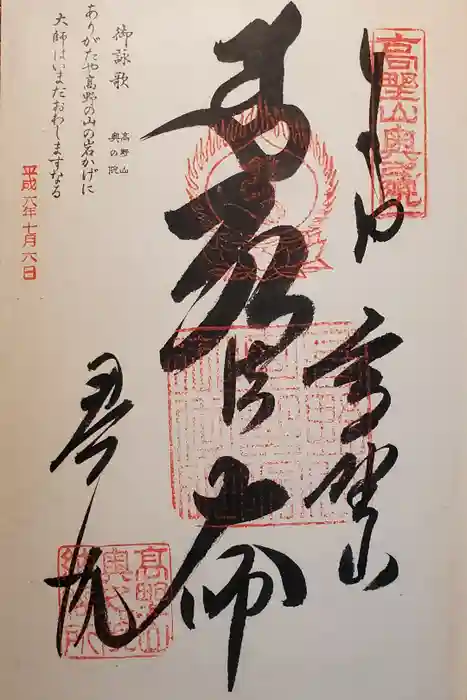 高野山奥之院
奉拝
高野山
弘法大師
奥之院
高野山
奥之院
納経所
御詠歌 高野山 奥の院
ありがたや高野の山の岩かげに
大師はいまだおわしますなる
平成六年十月八日